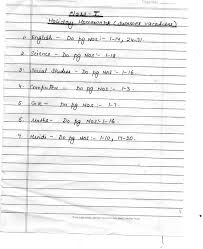 Class - I
Holiday Homework (summer vacations)
1. English - Do pg Nos:- 1-14, 24-31.
2. Science - Do pg Nos:- 1-18.
3. Social Studies - Do pg Nos:- 1-16.
4. Computer - Do pg Nos:- 1-3.
5. G.K - Do pg Nos:- 1-7.
6. Maths - Do pg Nos:- 1-16.
7. Hindi - Do pg Nos:- 1-10, 19-30.